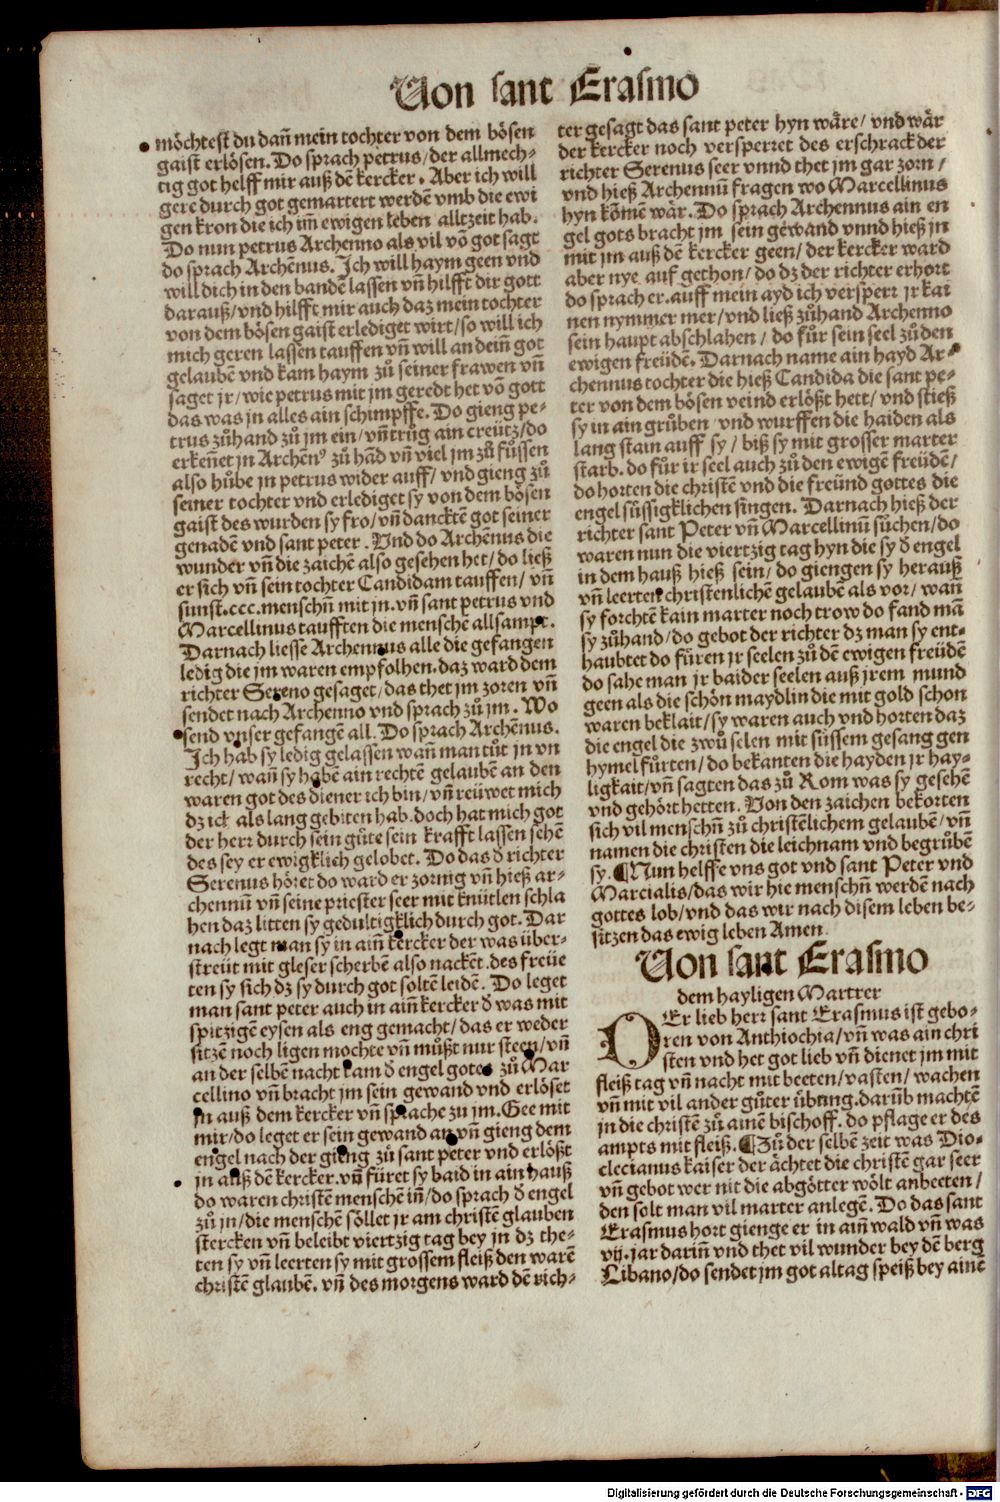 Von sant Erasmo
möchtest du dañ mein tochter von dem bösen
gaist erlösen. Do sprach petrus/der allmech-
tig got helff mir auß dē kercker. Aber ich will
gere durch got gemartert werdē vmb die ewi
gen kron die ich im̄ ewigen leben alltzeit hab.
Do nun petrus Archenno als vil vō got sagt
do sprach Archēnus. Ich will haym geen vnd
will dich in den bandē lassen vn̄ hilfft dir gott
darauß/vnd hilfft mir auch daz mein tochter
von dem bösen gaist erlediget wirt/so will ich
mich geren lassen tauffen vn̄ will an dein̄ got
gelaubē vnd kam haym zů seiner frawen vn̄
saget jr/wie petrus mit jm geredt het vō gott
das was in alles ain schimpffe. Do gieng pe-
trus zůhand zů jm ein/vn̄ trůg ain creütz/do
erken̄et jn Archēn⁹ zů hād vn̄ viel jm zů fůssen
also hůbe in petrus wider auff/vnd gieng zů
seiner tochter vnd erlediget sy von dem bösen
gaist des wurden sy fro/vn̄ danckтē got seiner
genadē vnd sant peter. Vnd do Archēnus die
wunder vn̄ die zaichē also gesehen het/do ließ
er sich vn̄ sein tochter Candidam tauffen/vn̄
sunst.ccc.menschn̄ mit jn. vn̄ sant petrus vnd
Marcellinus taufften die menschē allsampt.
Darnach liesse Archennus alle die gefangen
ledig die jm waren empfolhen. daz ward dem
richter Sereno gesaget/das thet jm zoren vn̄
sendet nach Archenno vnd sprach zů jm. Wo
send vnser gefangē all. Do sprach Archēnus.
Ich hab sy ledig gelassen wan̄ man tůt jn vn
recht/wan̄ sy habē ain rechtē gelaubē an den
waren got des diener ich bin/vn̄ reüwet mich
dz ich als lang gebiten hab. doch hat mich got
der herr durch sein gůte sein krafft lassen sehē
des sey er ewigklich gelobet. Do das ð richter
Serenus höret do ward er zornig vn̄ hieß ar-
chennū vn̄ seine priester seer mit knütlen schla
hen daz litten sy gedultigklich durch got. Dar
nach legt man sy in ain̄ kercker der was über-
streüt mit gleser scherbē also nackēt. des freüe
ten sy sich dz sy durch got soltē leidē. Do leget
man sant peter auch in ain̄ kercker ð was mit
spitzigē eysen als eng gemacht/das er weder
sitzē noch ligen mochte vn̄ můßt nur steen/vn̄
an der selbē nacht kam ð engel gotes zů Mar
cellino vn̄ bracht jm sein gewand vnd erlöset
jn auß dem kercker vn̄ sprache zu jm. Gee mit
mir/do leget er sein gewand an vn̄ gieng dem
engel nach der gieng zů sant peter vnd erlößt
jn auß dē kercker. vn̄ füret sy baid in ain hauß
do waren christē menschē in̄/do sprach ð engel
zů jn/die menschē söllet jr am christē glauben
stercken vn̄ beleibt viertzig tag bey jn dz the-
ten sy vn̄ leerten sy mit grossem fleiß den warē
christē glaubē. vn̄ des morgens ward dē rich-
ter gesagt das sant peter hyn wäre/vnd wär
der kercker noch versperret des erschrack der
richter Serenus seer vnnd thet jm gar zorn/
vnd hieß Archennū fragen wo Marcellinus
hyn kōmē wär. Do sprach Archennus ain en
gel gots bracht jm sein gewand vnnd hieß jn
mit jm auß dē kercker geen/der kercker ward
aber nye auf gethon/do dz der richter erhort
do sprach er. auff mein ayd ich versperr jr kai
nen nymmer mer/vnd ließ zůhand Archenno
sein haupt abschlahen/do fůr sein seel zů den
ewigen freüdē. Darnach name ain hayd Ar-
chennus tochter die hieß Candida die sant pe-
ter von dem bösen veind erlößt hett/vnd stieß
sy in ain grůben/vnd wurffen die haiden als
lang stain auff sy/biß sy mit grosser marter
starb. do fůr ir seel auch zů den ewigē freüdē/
do horten die christē vnd die freünd gottes die
engel süssigklichen singen. Darnach hieß der
richter sant Peter vn̄ Marcellinū sůchen/do
waren nun die viertzig tag hyn die sy ð engel
in dem hauß hieß sein/do giengen sy herauß
vn̄ leerten christenlichē gelaubē als vor/wan̄
sy forchtē kain marter noch trow do fand mā
sy zůhand/do gebot der richter dz man sy ent-
haubtet do fůren jr seelen zů dē ewigen freüdē
do sahe man jr baider seelen auß jrem mund
geen als die schön maydlin die mit gold schon
waren beklait/sy waren auch vnd horten daz
die engel die zwů selen mit süssem gesang gen
hymel fůrten/do bekanten die hayden jr hay-
ligkait/vn̄ sagten das zů Rom was sy gesehē
vnd gehört hetten. Von den zaichen bekorten
sich vil menschn̄ zů christēlichem gelaubē/vn̄
namen die christen die leichnam vnd begrůbē
sy. ¶Nun helffe vns got vnd sant Peter vnd
Marcialis/das wir hie menschn̄ werdē nach
gottes lob/vnd das wir nach disem leben be-
sitzen das ewig leben Amen.
Von sant Erasmo
dem hayligen Martrer
DEr lieb herr sant Erasmus ist gebo-
ren von Anthiochia/vn̄ was ain chri
sten vnd het got lieb vn̄ dienet jm mit
fleiß tag vn̄ nacht mit beeten/vasten/wachen
vn̄ mit vil ander gůter übung. darüb machtē
jn die christē zů ainē bischoff. do pflage er des
ampts mit fleiß. ¶Zů der selbē zeit was Dio-
clecianus kaiser der ächtet die christē gar seer
vn̄ gebot wer nit die abgötter wölt anbeeten/
den solt man vil marter anlegē. Do das sant
Erasmus hort gienge er in ain̄ wald vn̄ was
vij. jar darin̄ vnd thet vil wunder bey dē berg
Libano/do sendet jm got altag speiß bey ainē
Digitalisierung gefördert durch die Deutsche Forschungsgemeinschaft - DFG